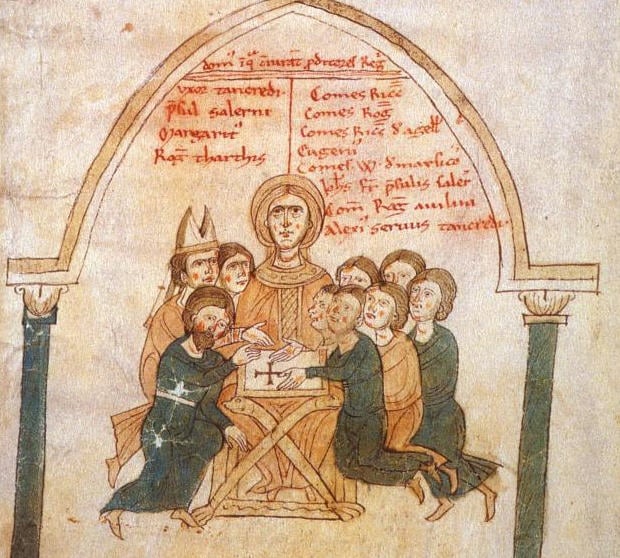 uxor tancredi
p̄sul salerni
Margarit᾽
Rog̅ tharthis
Comes Ricc
Comes Rog̅
Comes Ricc̅ d᾽agell
Eugeni᾽
Comes W᾽ d᾽marsico
Joh̄s fr̄ p̄sulis saler
Com̄ Rog̅
Alexi᾽ servus tancredi